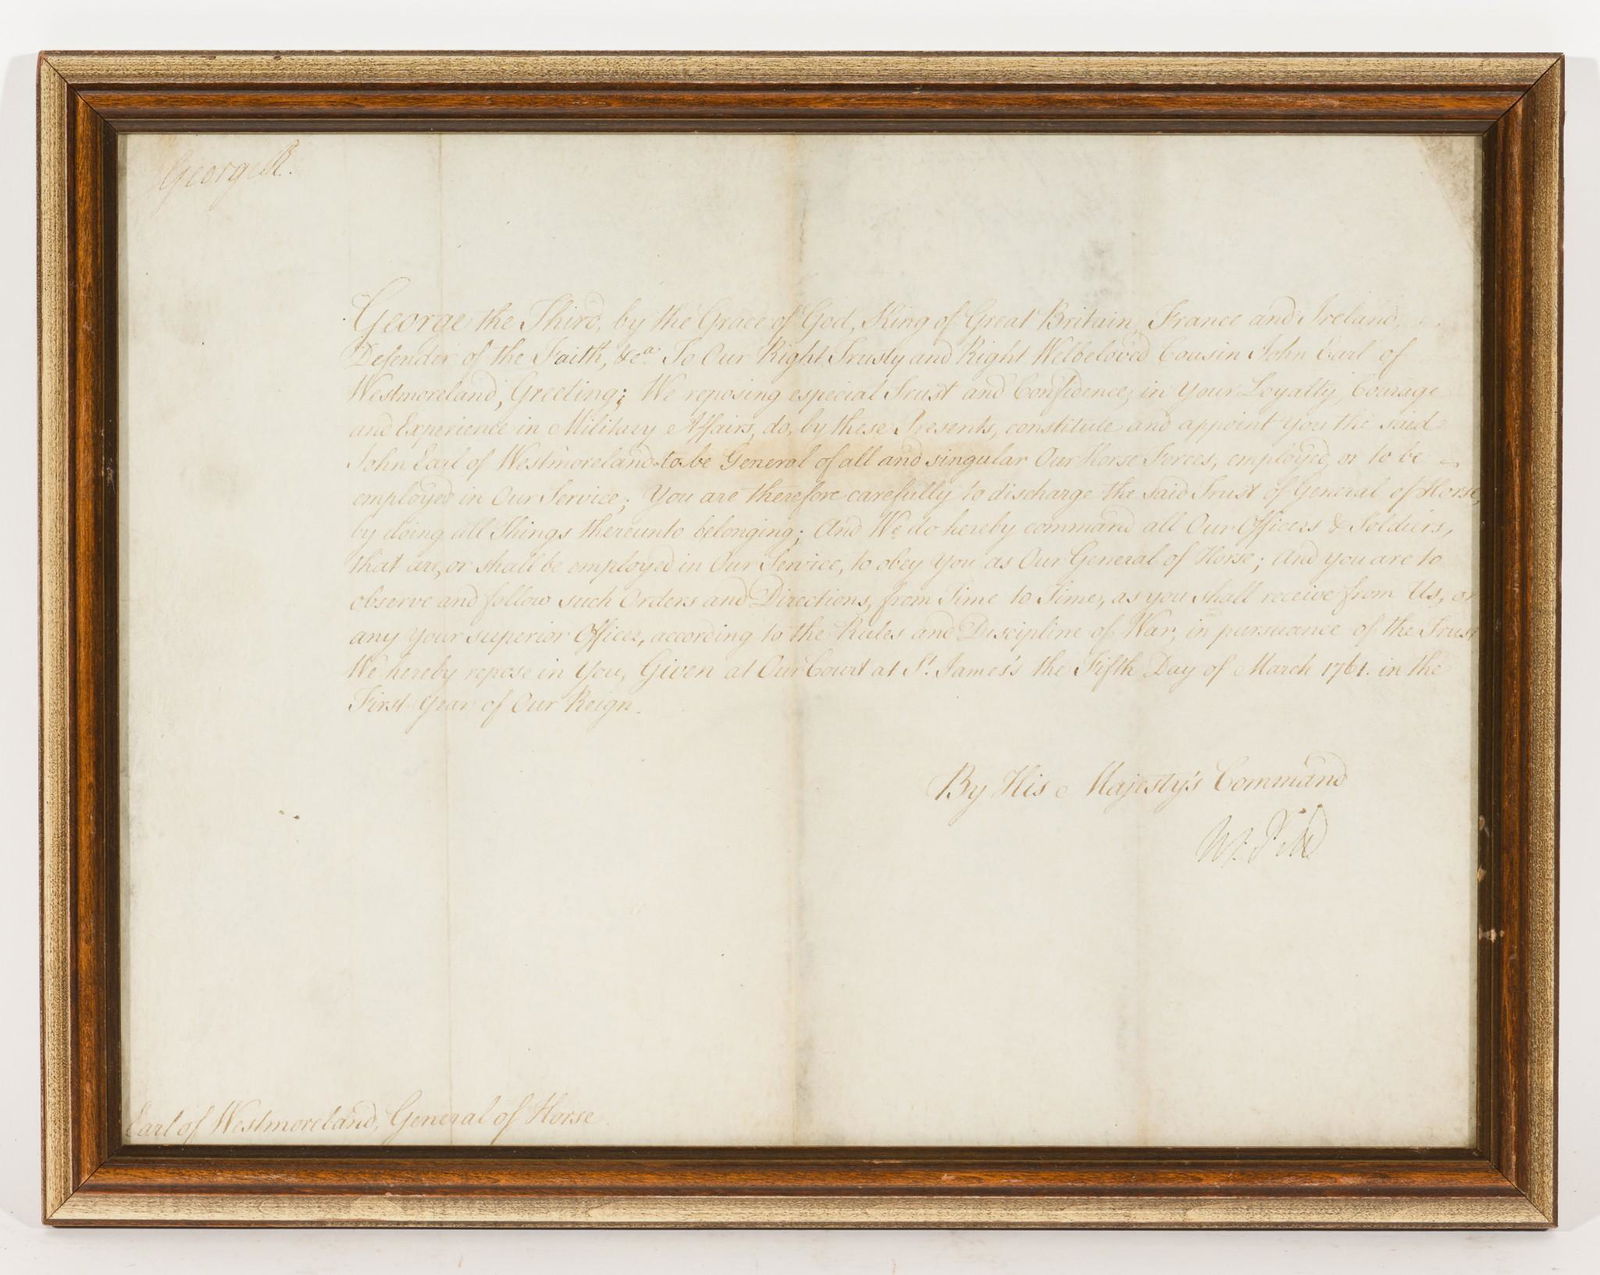 George R.
George the Third, by the Grace of God, King of Great Britain, France and Ireland,
Defender of the Faith, &c.a To Our Right Trusty and Right Welbeloved Cousin John Earl of
Westmoreland, Greeting; We reposing especial Trust and Confidence, in Your Loyalty, Courage
and Experience in Military Affairs, do, by these Presents, constitute and appoint You the said
John Earl of Westmoreland to be General of all and singular Our Horse Forces, employed, or to be
employed in Our Service; You are therefore carefully to discharge the said Trust of General of Horse,
by doing all Things thereunto belonging; And We do hereby command all Our Officers & Soldiers,
that are, or shall be employed in Our Service, to obey You as Our General of Horse; And you are to
observe and follow such Orders and Directions, from Time to Time, as you shall receive from Us, or
any your superior Officer, according to the Rules and Discipline of War, in pursuance of the Trust
We hereby repose in You, Given at Our Court at St. James's the Fifth Day of March 1761. in the
First Year of Our Reign.
By His Majesty's Command
W. Pitt
Earl of Westmoreland, General of Horse